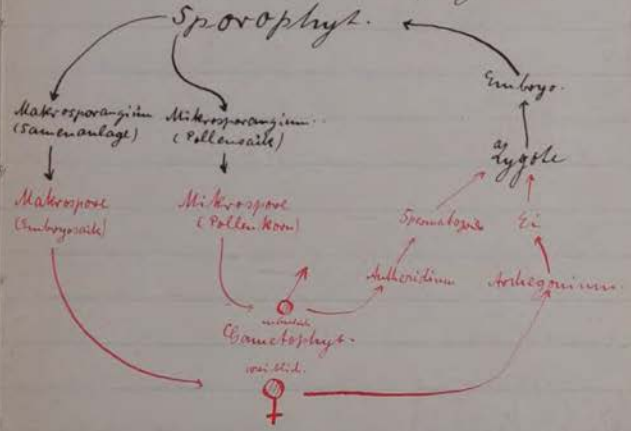 Sporophyt.
Embryo.
Makrosporangium
(Samenanlage)
Mikrosporangium.
(Pollensack)
Zygote
Makrospore
(Embryosack)
Mikrospore
(Pollenkorn)
Ei
Antheridium
Archegonium.
männlich
Gametophyt.
weiblich.